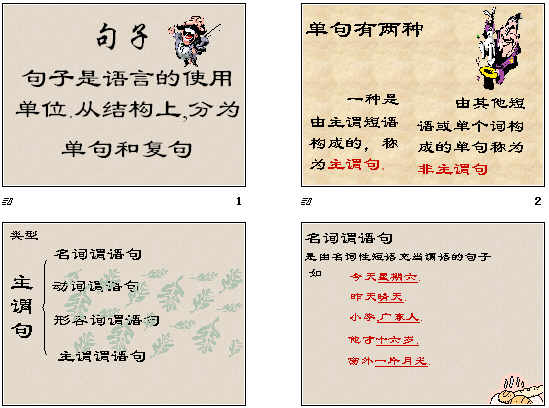 句子
句子是语言的使用
单位.从结构上,分为
单句和复句
1
单句有两种
一种是
由主谓短语
构成的，称
为主谓句.
由其他短
语或单个词构
成的单句称为
非主谓句
2
类型
主谓句
名词谓语句
动词谓语句
形容词谓语句
主谓谓语句
名词谓语句
是由名词性短语充当谓语的句子
如
今天星期六.
昨天晴天.
小李,广东人.
他才十六岁.
窗外一片月光.